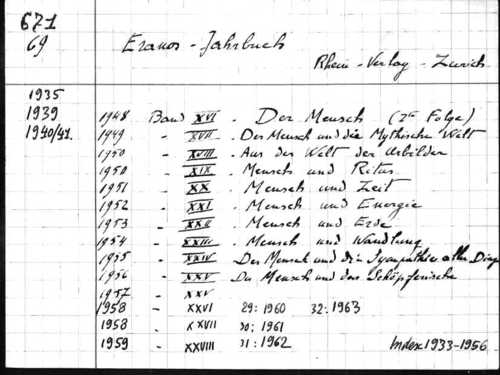 671
69
Eranos - Jahrbuch
Rhein - Verlag - Zurich
1935
1939
1940/41.
1948 Band XVI . Der Mensch (2te Folge)
1949 - XVII . Der Mensch und die Mythische Welt
1950 - XVIII . Aus der Welt der Urbilder
1950 - XIX . Mensch und Ritus
1951 - XX . Mensch und Zeit
1952 - XXI . Mensch und Energie
1953 - XXII . Mensch und Erde
1954 - XXIII . Mensch und Wandlung
1955 - XXIV . Der Mensch und die Sympathie aller Dinge
1956 - XXV . Der Mensch und das Schöpferische
1957 - XXV
1958 - XXVI 29: 1960 32: 1963
1958 - XXVII 30; 1961
1959 - XXVIII 31: 1962 Index 1933-1956